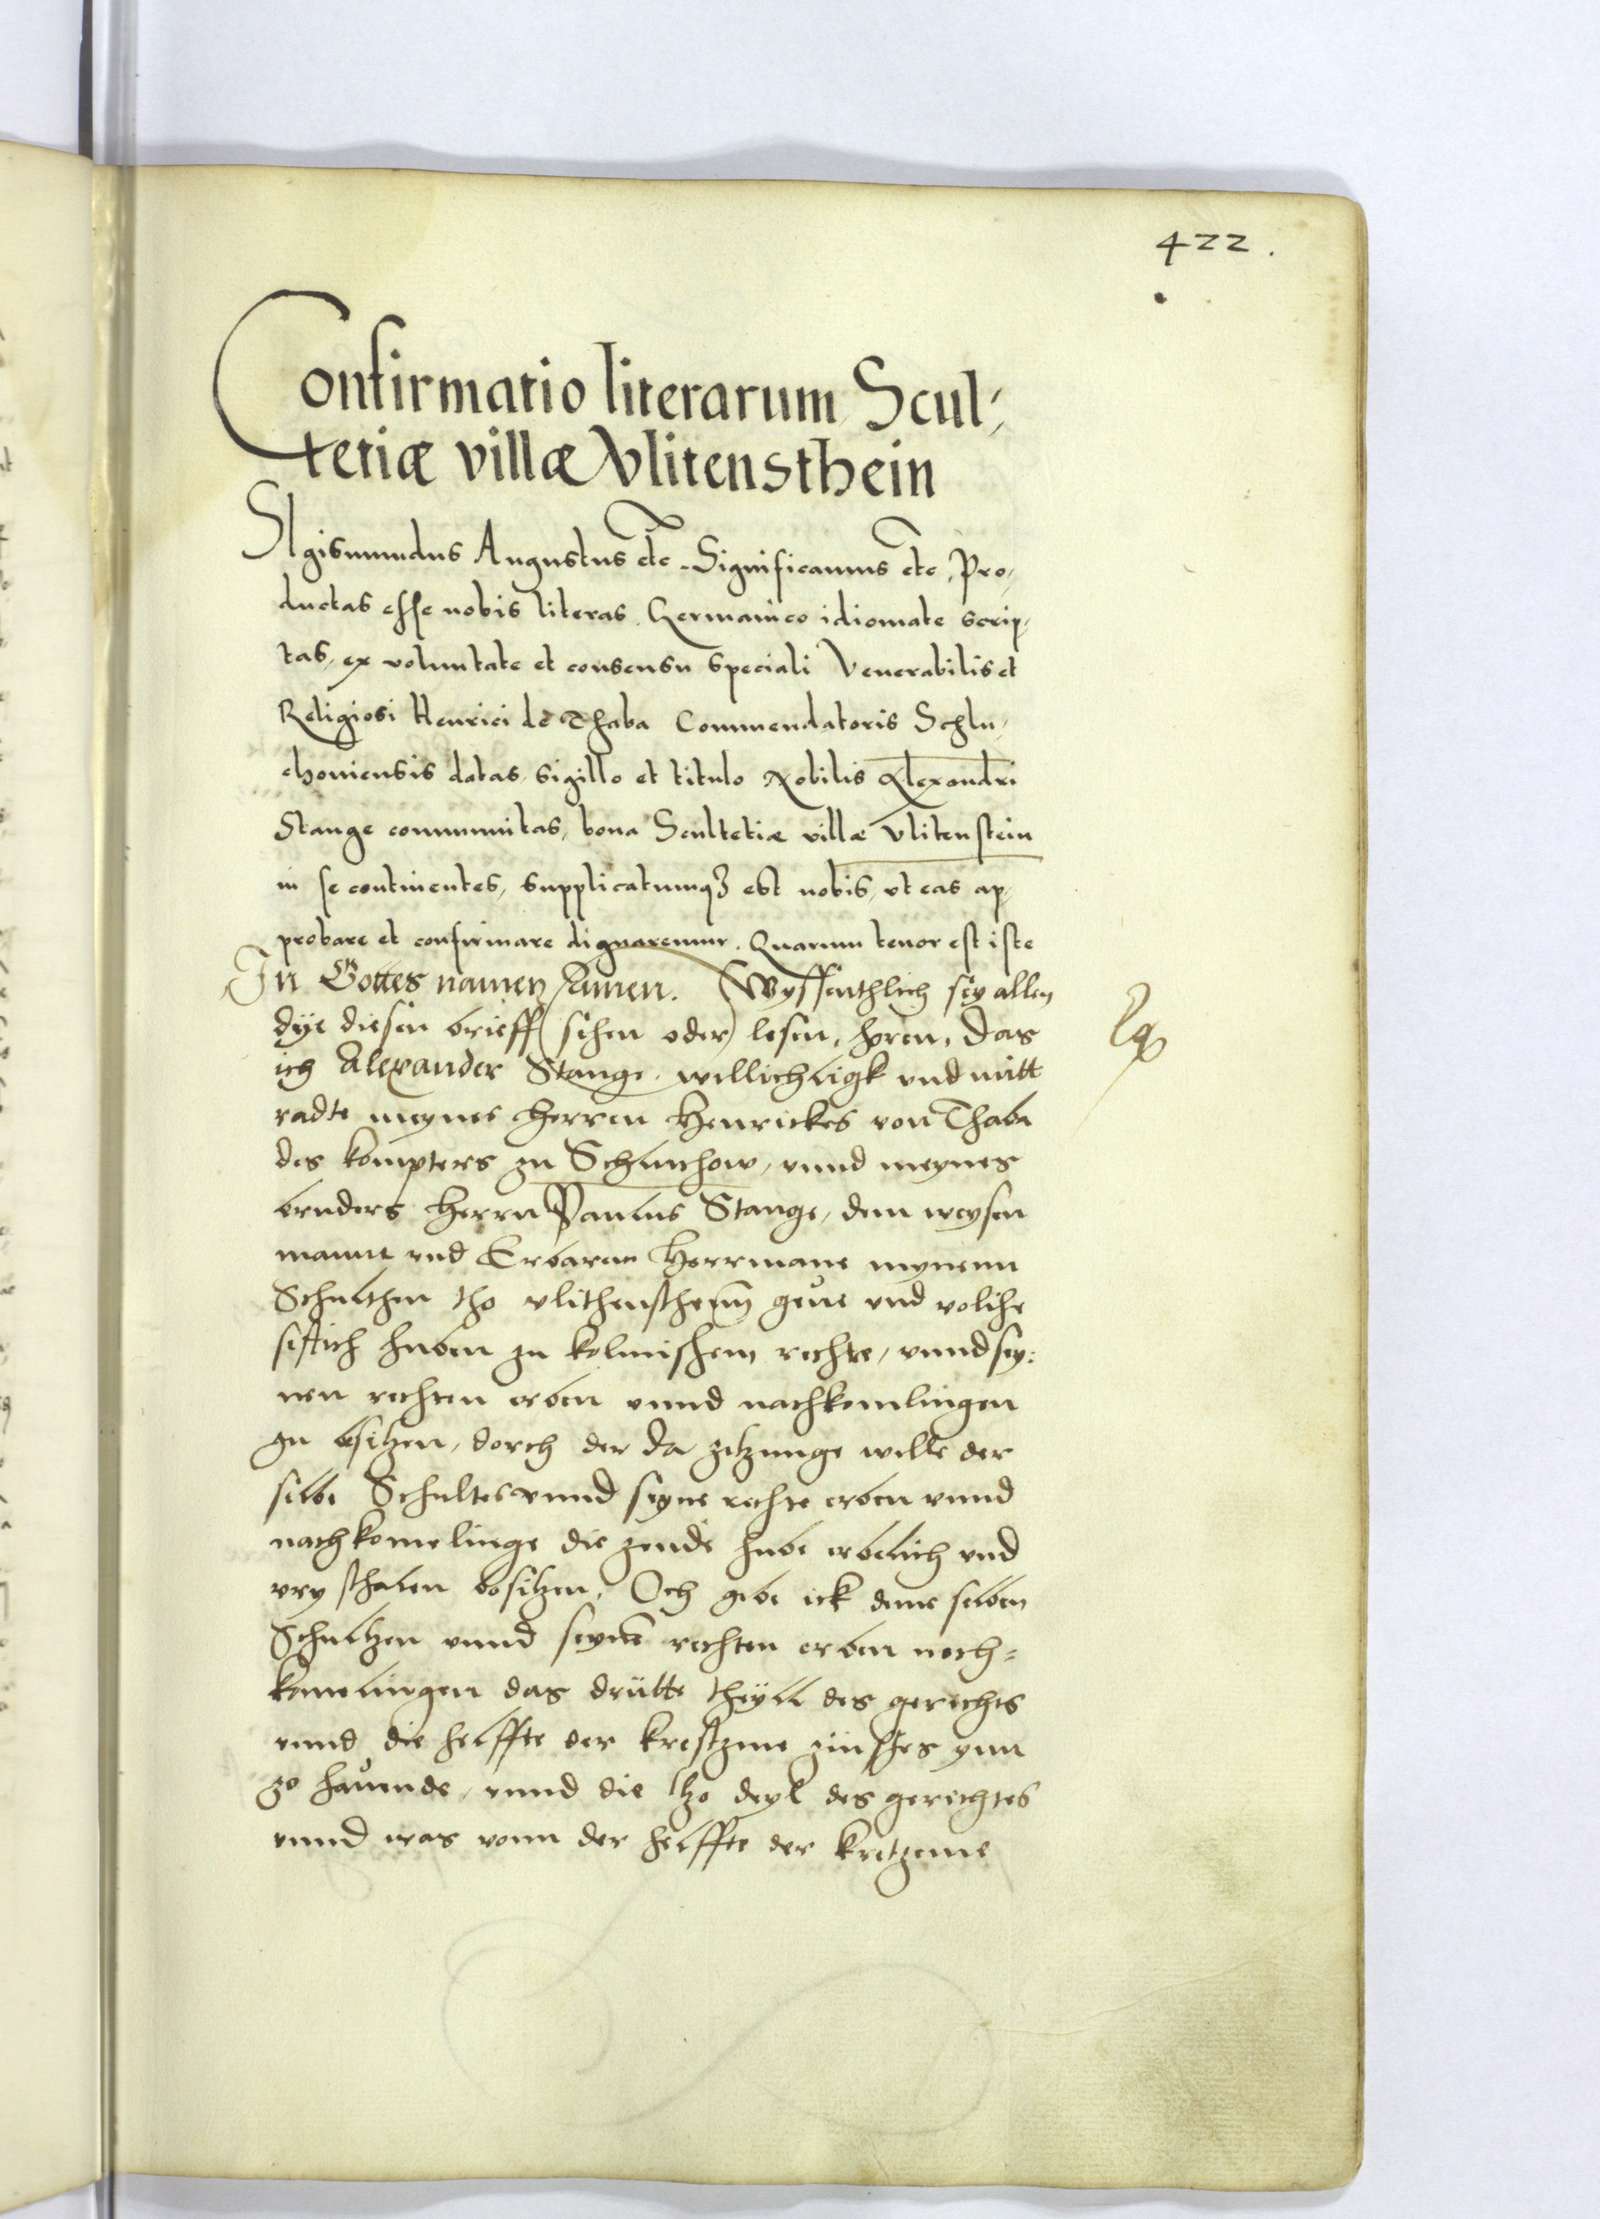 422.
Confirmatio literarum Scul,
tetiæ villæ Vlitensthein
SIgismundus Augustus etc. Significamus etc, Pro,
ductas esse nobis literas Germanico idiomate scrip,
tas, ex voluntate et consensu speciali Venerabilis et
Religiosi Henrici de Thaba Commendatoris Schlu,
choniensis datas, sigillo et titulo Nobilis Alexandri
Stange communitas, bona Scultetiæ villæ Vlitenstein
in se continentes, supplicatumqз est nobis, vt eas ap,
probare et confirmare dignaremur. Quarum tenor est iste
In Gottes namen Amen. Wyssenthlich sey allen
dye diesen brieff (sehen oder) lesen, horen, das
ich Alexander Stange willichligk vnd mitt
radte meynes herren Henrickes von Thaba
des kompters zu Schluchow, vnnd meynes
bruders herrn Paulus Stange, dem weysen
manne vnd Erbaren Herrmane mynenn
Schulthen tho vlithensthenn geue vnd volihe
sestich huben zu kolmischem rechte, vnnd sey:
nen rechten erben vnnd nachkomlingen
zu besitzen, dorch der da zitzunge wille der
selbe Schultes vnnd seyne rechte erben vnnd
nachkomelinge die zende hube erbelich vnd
vry schalen besitzen, Och gebe ick deme selben
Schultzen vnnd seynē rechten erben noch=
komelingen das drütte theyll des gerichts
vnnd die helffte der kreszme zinses ynn
zo hauende, vnnd die tzo deyl des gerichtes
vnnd was vonn der helffte der kretzeme